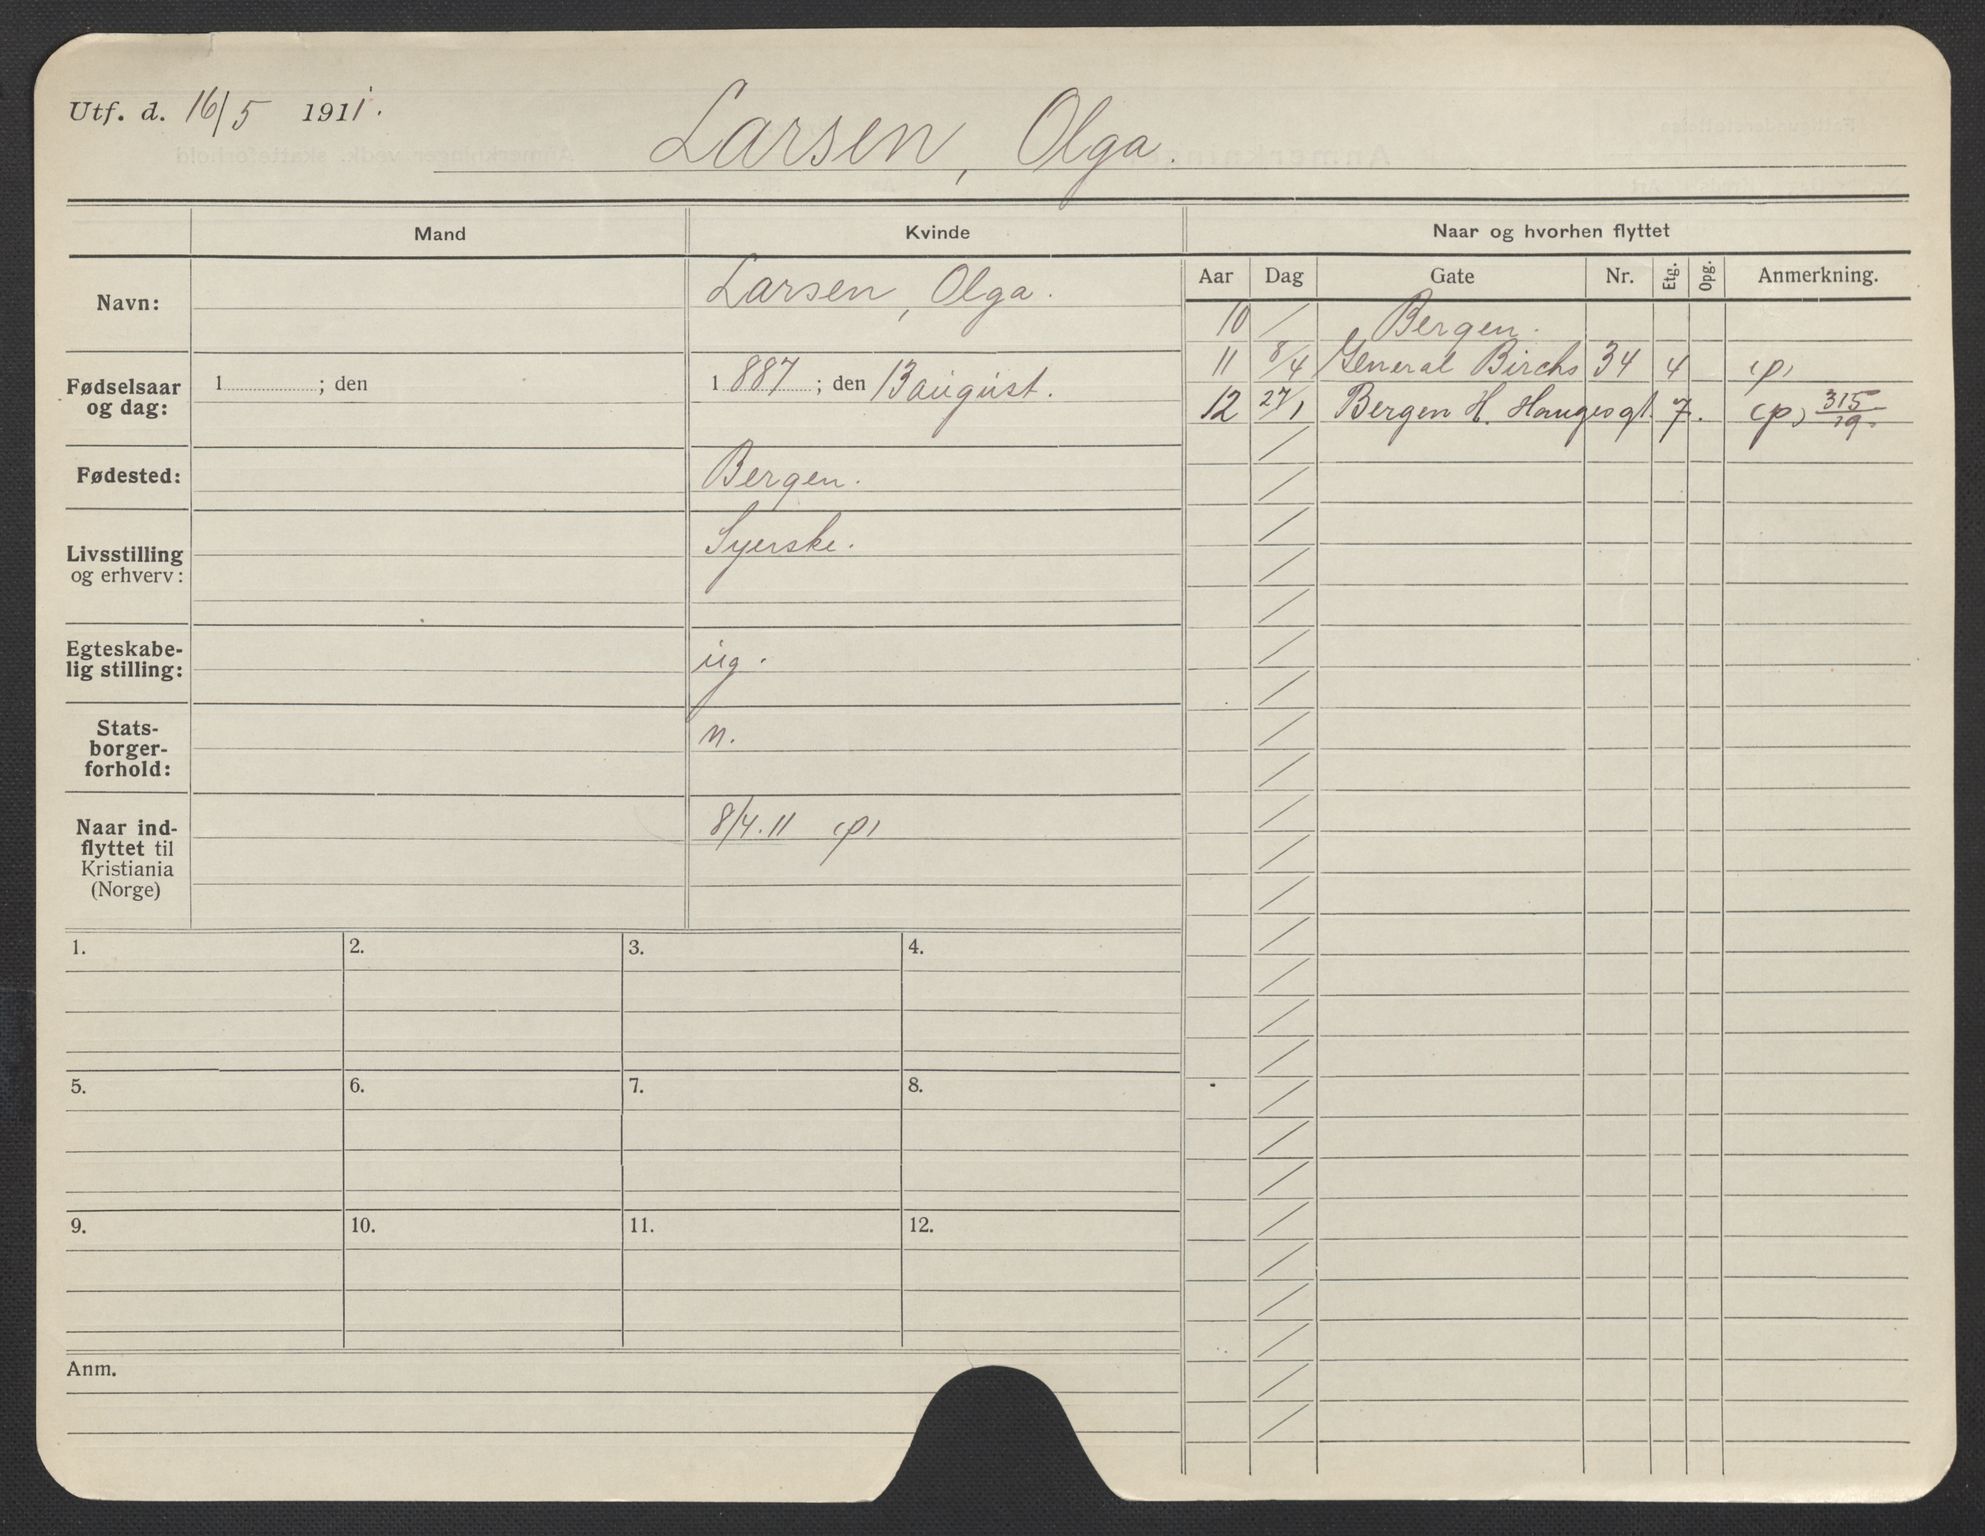 Utf. d. 16/5 1911.
Larsen, Olga.
Mand
Kvinde
Naar og hvorhen flyttet
Navn:
Larsen, Olga.
Fødselsaar og dag:
1 ; den
1887 ; den 13 august.
Fødested:
Bergen.
Livsstilling og erhverv:
Syerske.
Egteskabe-
lig stilling:
ug.
Stats-
borger-
forhold:
n.
Naar ind-
flyttet til
Kristiania
(Norge)
8/4.11 (p)
Aar Dag Gate Nr. Etg. Opg. Anmerkning.
10 / Bergen.
11 8/4 General Birchs 34 4 (p)
12 27/1 Bergen H. Haugesgt. 7. (p) 315/19.
1. 2. 3. 4.
5. 6. 7. 8.
9. 10. 11. 12.
Anm.